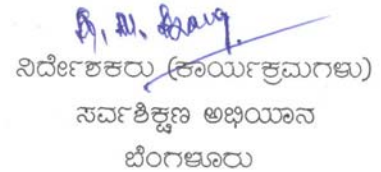 ನಿರ್ದೇಶಕರು (ಕಾರ್ಯಕ್ರಮಗಳು)
ಸರ್ವಶಿಕ್ಷಣ ಅಭಿಯಾನ
ಬೆಂಗಳೂರು